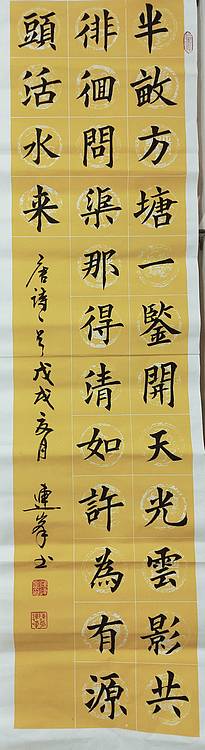 半畝方塘一鑒開天光雲影共
徘徊問渠那得清如許為有源
頭活水来
唐詩一首戊戌亥月
連峯书